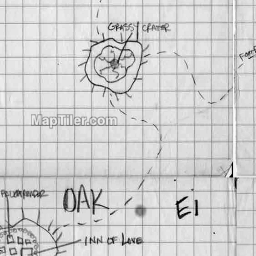 GRASSY CRATER
MapTiler.com
OAK
EI
INN OF LOVE